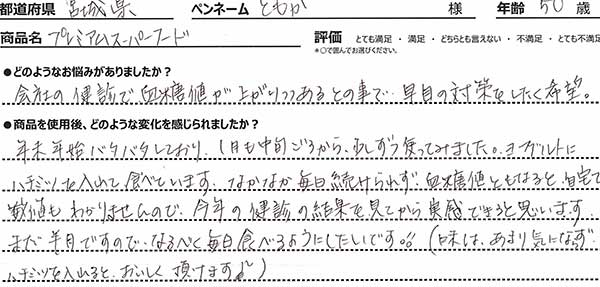 都道府県 宮城県 ペンネーム ともか 様 年齢 50 歳
商品名 プレミアムスーパーフード 評価 とても満足 ・ 満足 ・ どちらとも言えない ・ 不満足 ・ とても不満足
*○で囲んでお選びください。
●どのようなお悩みがありましたか?
会社の健診で、血糖値が上がりつつあるとの事で、早目の対策をしたく希望。
●商品を使用後、どのような変化を感じられましたか?
年末年始バタバタしており、1月も中旬ごろから、少しずつ使ってみました。ヨーグルトに
ハチミツを入れて食べています。なかなか毎日続けられず、血糖値ともなると、自宅で
数値もわかりませんので、今年の健診の結果を見てから実感できると思います。
まだ半月ですので、なるべく毎日食べるようにしたいです。(味は、あまり気にならず、
ハチミツを入れると、おいしく頂けます♪)